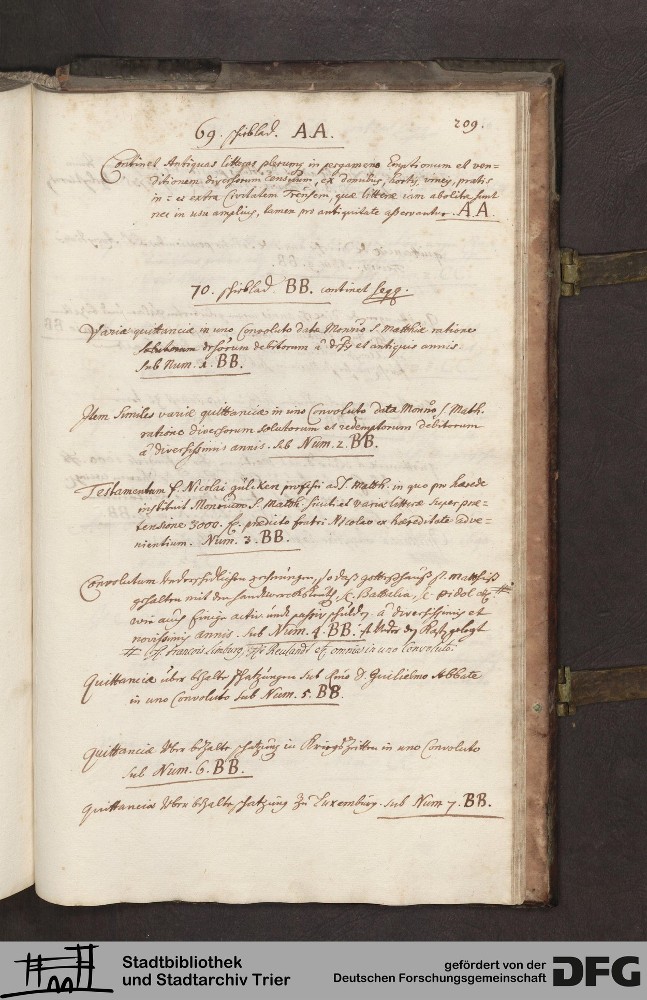 209.
69. schieblad. AA.
Continet Antiquas litteras plerumq; in pergameno Emptionum et ven=
ditionum diversorum censuum, ex domibus, hortis, vineis, pratis
in= et extra Civitatem Trevirensem, quae litterae iam abolitae sunt
nec in usu amplius, tamen pro antiquitate asservantur. AA.
70. schieblad BB. continet seqq.
Variae quittanciae in uno Convoluto data Monrio S. Matthiae ratione
debitorum à et antiquis annis.
sub Num. 1. BB.
Item Similes variae quittanciae in uno Convoluto data Monrio S. Matth.
ratione diversorum solutorum et redemptorum debitorum
à diversissimis annis. sub Num. 2. BB.
Testamentum f. Nicolai gülixen professi ad S. Matth. in quo pro haerede
instituit Monrium S. Matth. sicuti et variae litterae super prae=
tensione 3000. praedicto fratri Nicolao ex haereditate adve=
nientium. Num. 3. BB.
Convolutum Underschidlichen rechnungen, so das gotteshaus St. Matthiß
gehalten mit den handwercksleuth, Battelia, pidol
wie auch Einige activ- undt passiv schulden. à diversissimis et
novissimis annis. sub Num. 4. BB. gelegt
# François Limburg, Reulandt et omnia in uno Convoluto.
Quittanciae über bezalte schatzungen sub Rmo D. Guilielmo Abbate
in uno Convoluto sub Num. 5. BB.
Quittanciae Uber bezalte schatzung in Kriegszeitten in uno Convoluto
sub Num. 6. BB.
Quittanciae Uber bezalte schatzung zu Luxemburg. sub Num 7. BB.
Stadtbibliothek
und Stadtarchiv Trier
gefördert von der
Deutschen Forschungsgemeinschaft
DFG